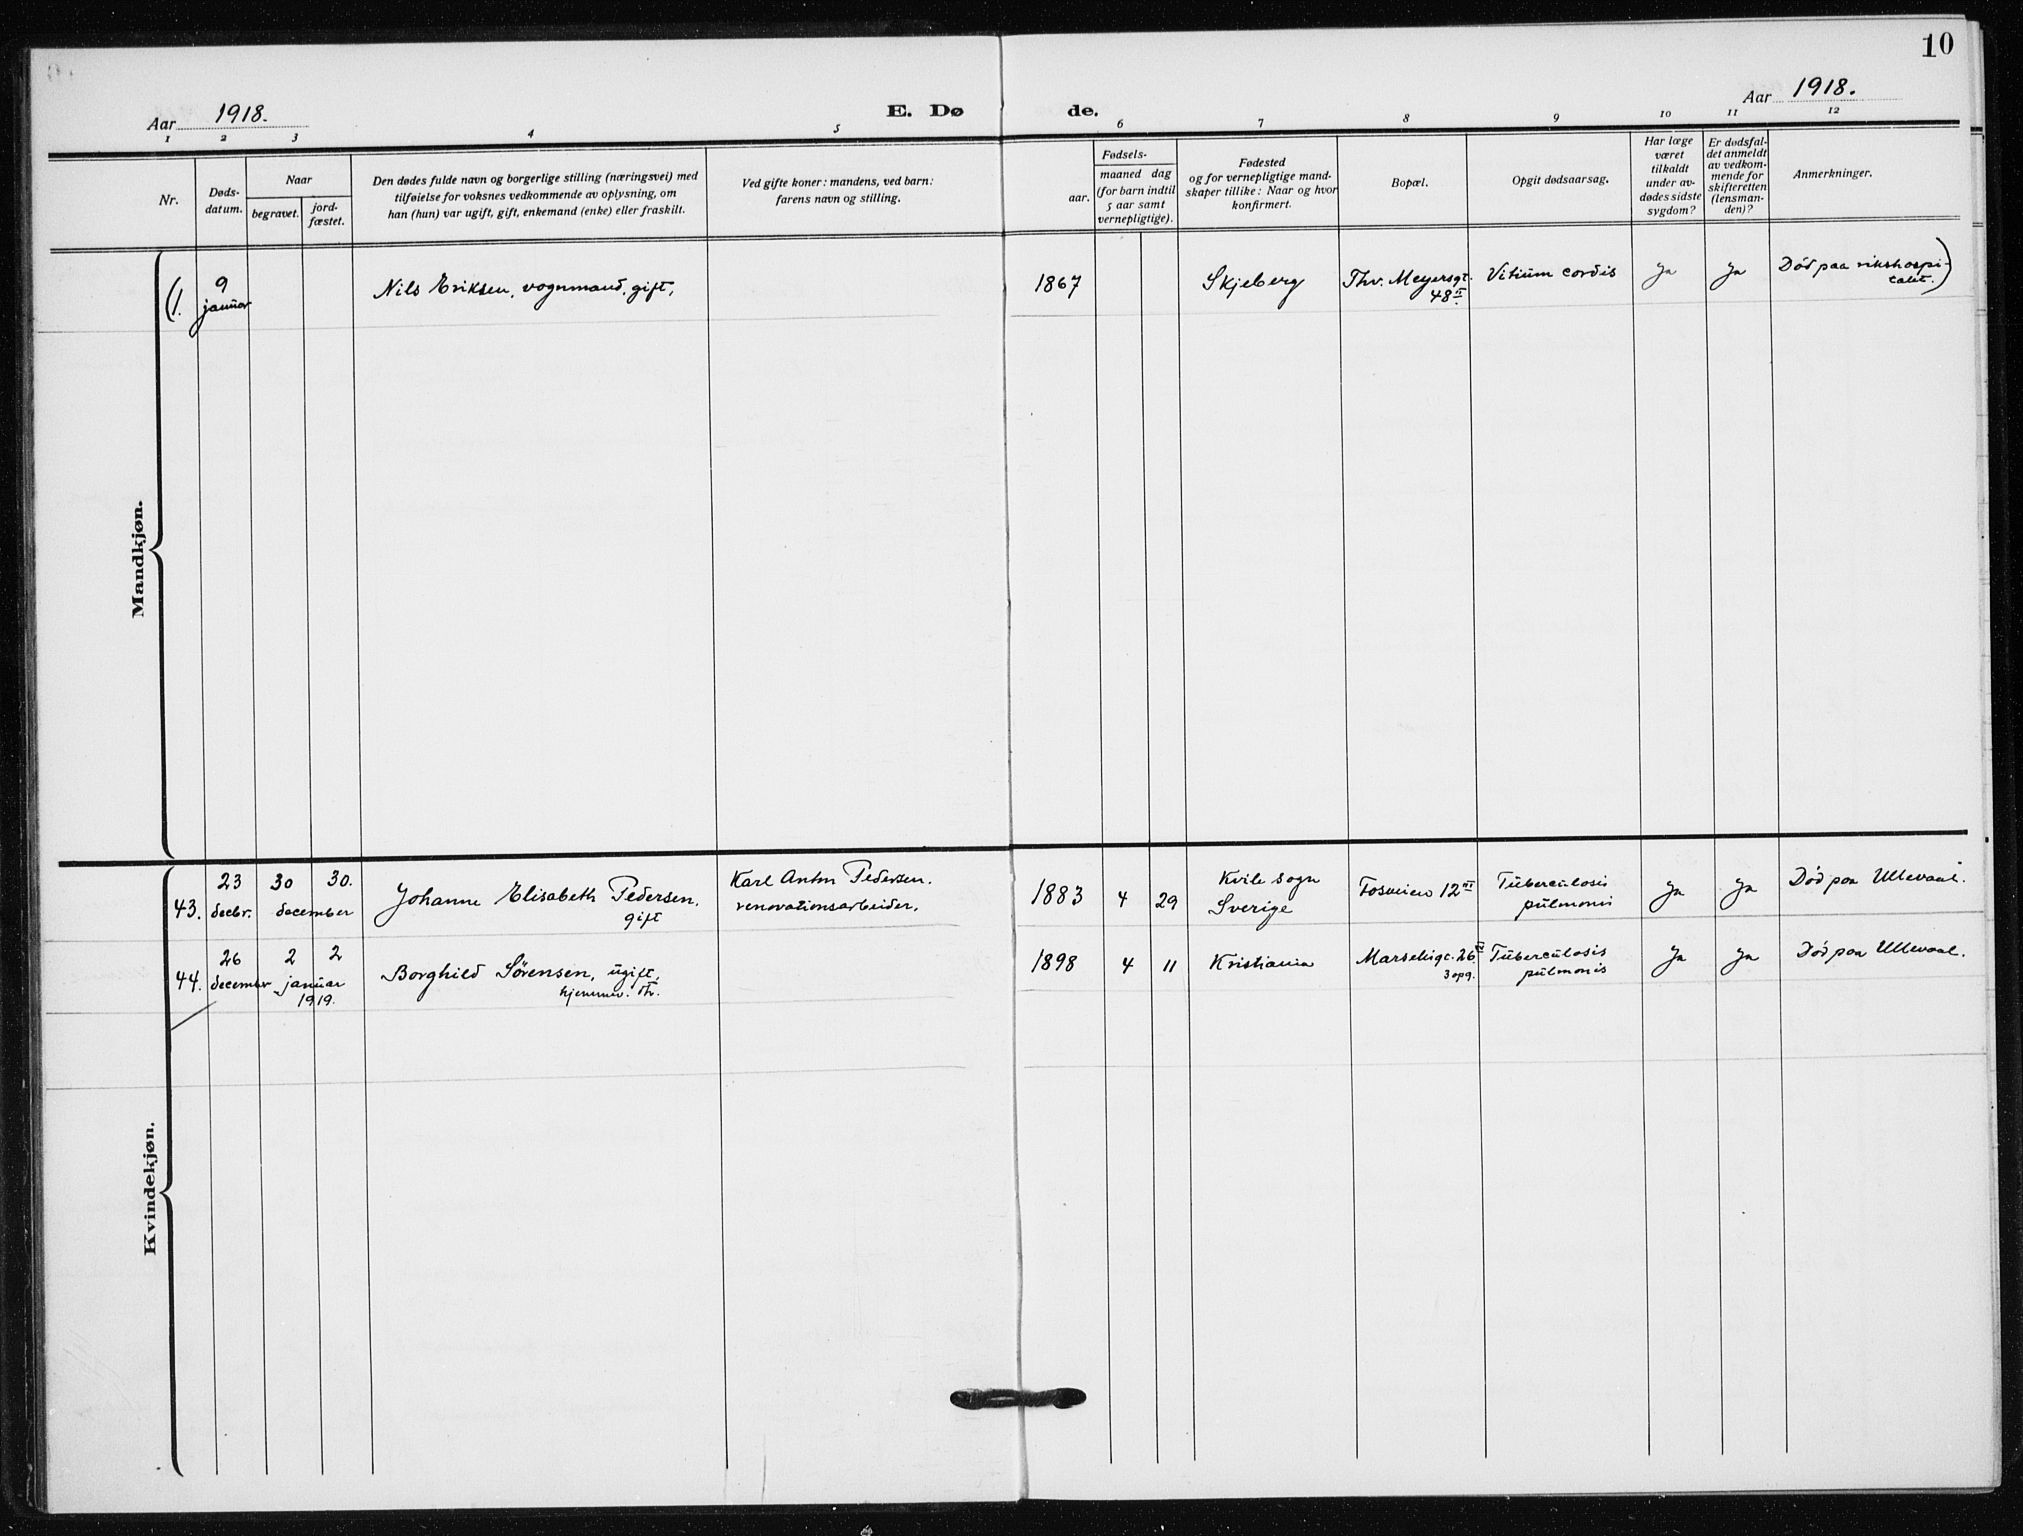 10
Aar 1918.
E. Dø de.
Aar 1918.
1 2 3 4 5 6 7 8 9 10 11 12
Nr.
Døds-
datum.
Naar
begravet.
jord-
fæstet.
Den dødes fulde navn og borgerlige stilling (næringsvei) med
tilføielse for voksnes vedkommende av oplysning, om
han (hun) var ugift, gift, enkemand (enke) eller fraskilt.
Ved gifte koner: mandens, ved barn:
farens navn og stilling.
Fødsels-
aar.
maaned dag
(for barn indtil
5 aar samt
vernepligtige).
Fødested
og for vernepligtige mand-
skaper tillike: Naar og hvor
konfirmert.
Bopæl.
Opgit dødsaarsag.
Har læge
været
tilkaldt
under av-
dødes sidste
sygdom?
Er dødsfal-
det anmeldt
av vedkom-
mende for
skifteretten
(lensman-
den)?
Anmerkninger.
Mandkjøn.
(1. 9
januar
Nils Eriksen, vognmand, gift,
1867
Skjeberg
Thv. Meyersgt.
48 II
Vitium cordis
Ja
Ja
Død paa rikshospi-
talet.)
Kvindekjøn.
43.
23
decbr.
30 30.
december
Johanne Elisabeth Pedersen,
gift
Karl Anton Pedersen.
renovationsarbeider.
1883 4 29
Kvile sogn
Sverige
Fosveien 12 III
Tuberculosis
pulmonis
Ja
Ja
Død paa Ullevaal.
44.
26
december
2 2
januar
1919.
Borghild Sørensen, ugift,
hjemmev. dtr.
1898 4 11
Kristiania
Marseligt. 26
3 opg.
Tuberculosis
pulmonis
Ja
Ja
Død paa Ullevaal.